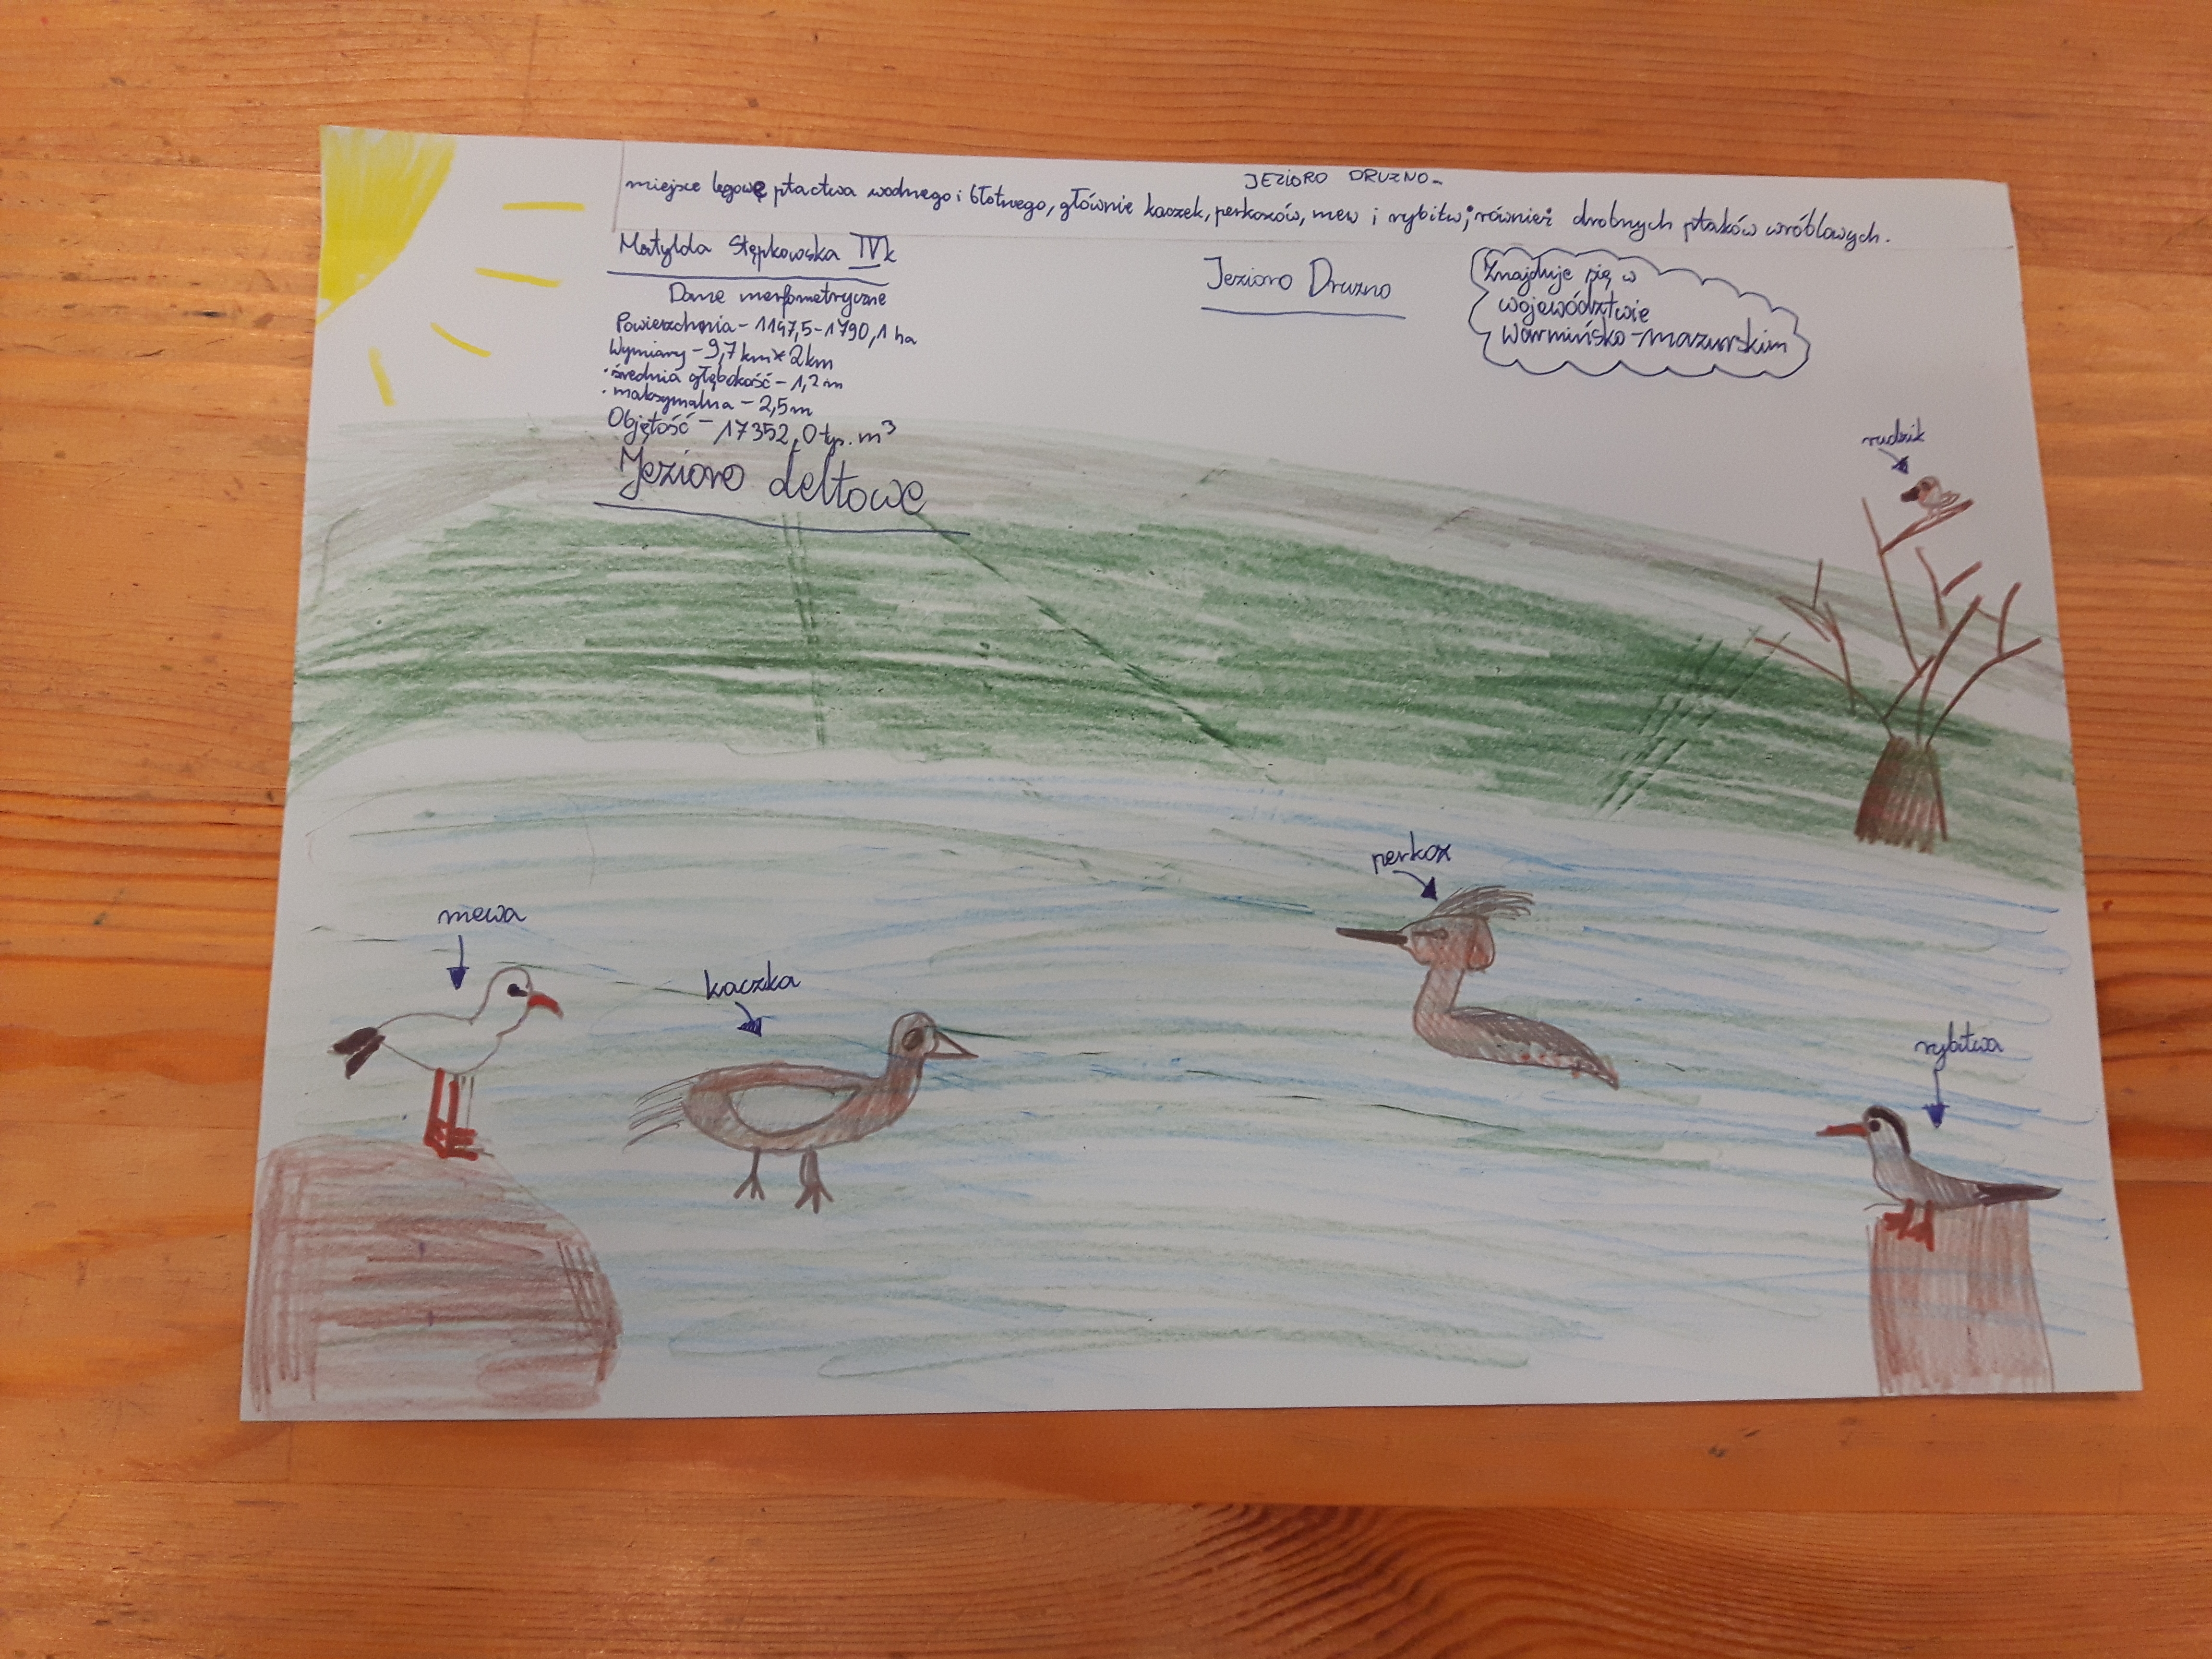 JEZIORO DRUZNO-
miejsce lęgowe ptactwa wodnego i błotnego, głównie kaczek, perkozów, mew i rybitw; również drobnych ptaków wróblowych.
Matylda Stępkowska IVk
Dane morfometryczne
Powierzchnia - 1147,5-1790,1 ha
Wymiary - 9,7 km × 2km
· średnia głębokość - 1,2 m
· maksymalna - 2,5m
Objętość - 17352,0 tyś. m³
Jezioro deltowe
Jezioro Druzno
Znajduje się w
województwie
warmińsko-mazurskim
rudzik
perkoz
mewa
kaczka
rybitwa